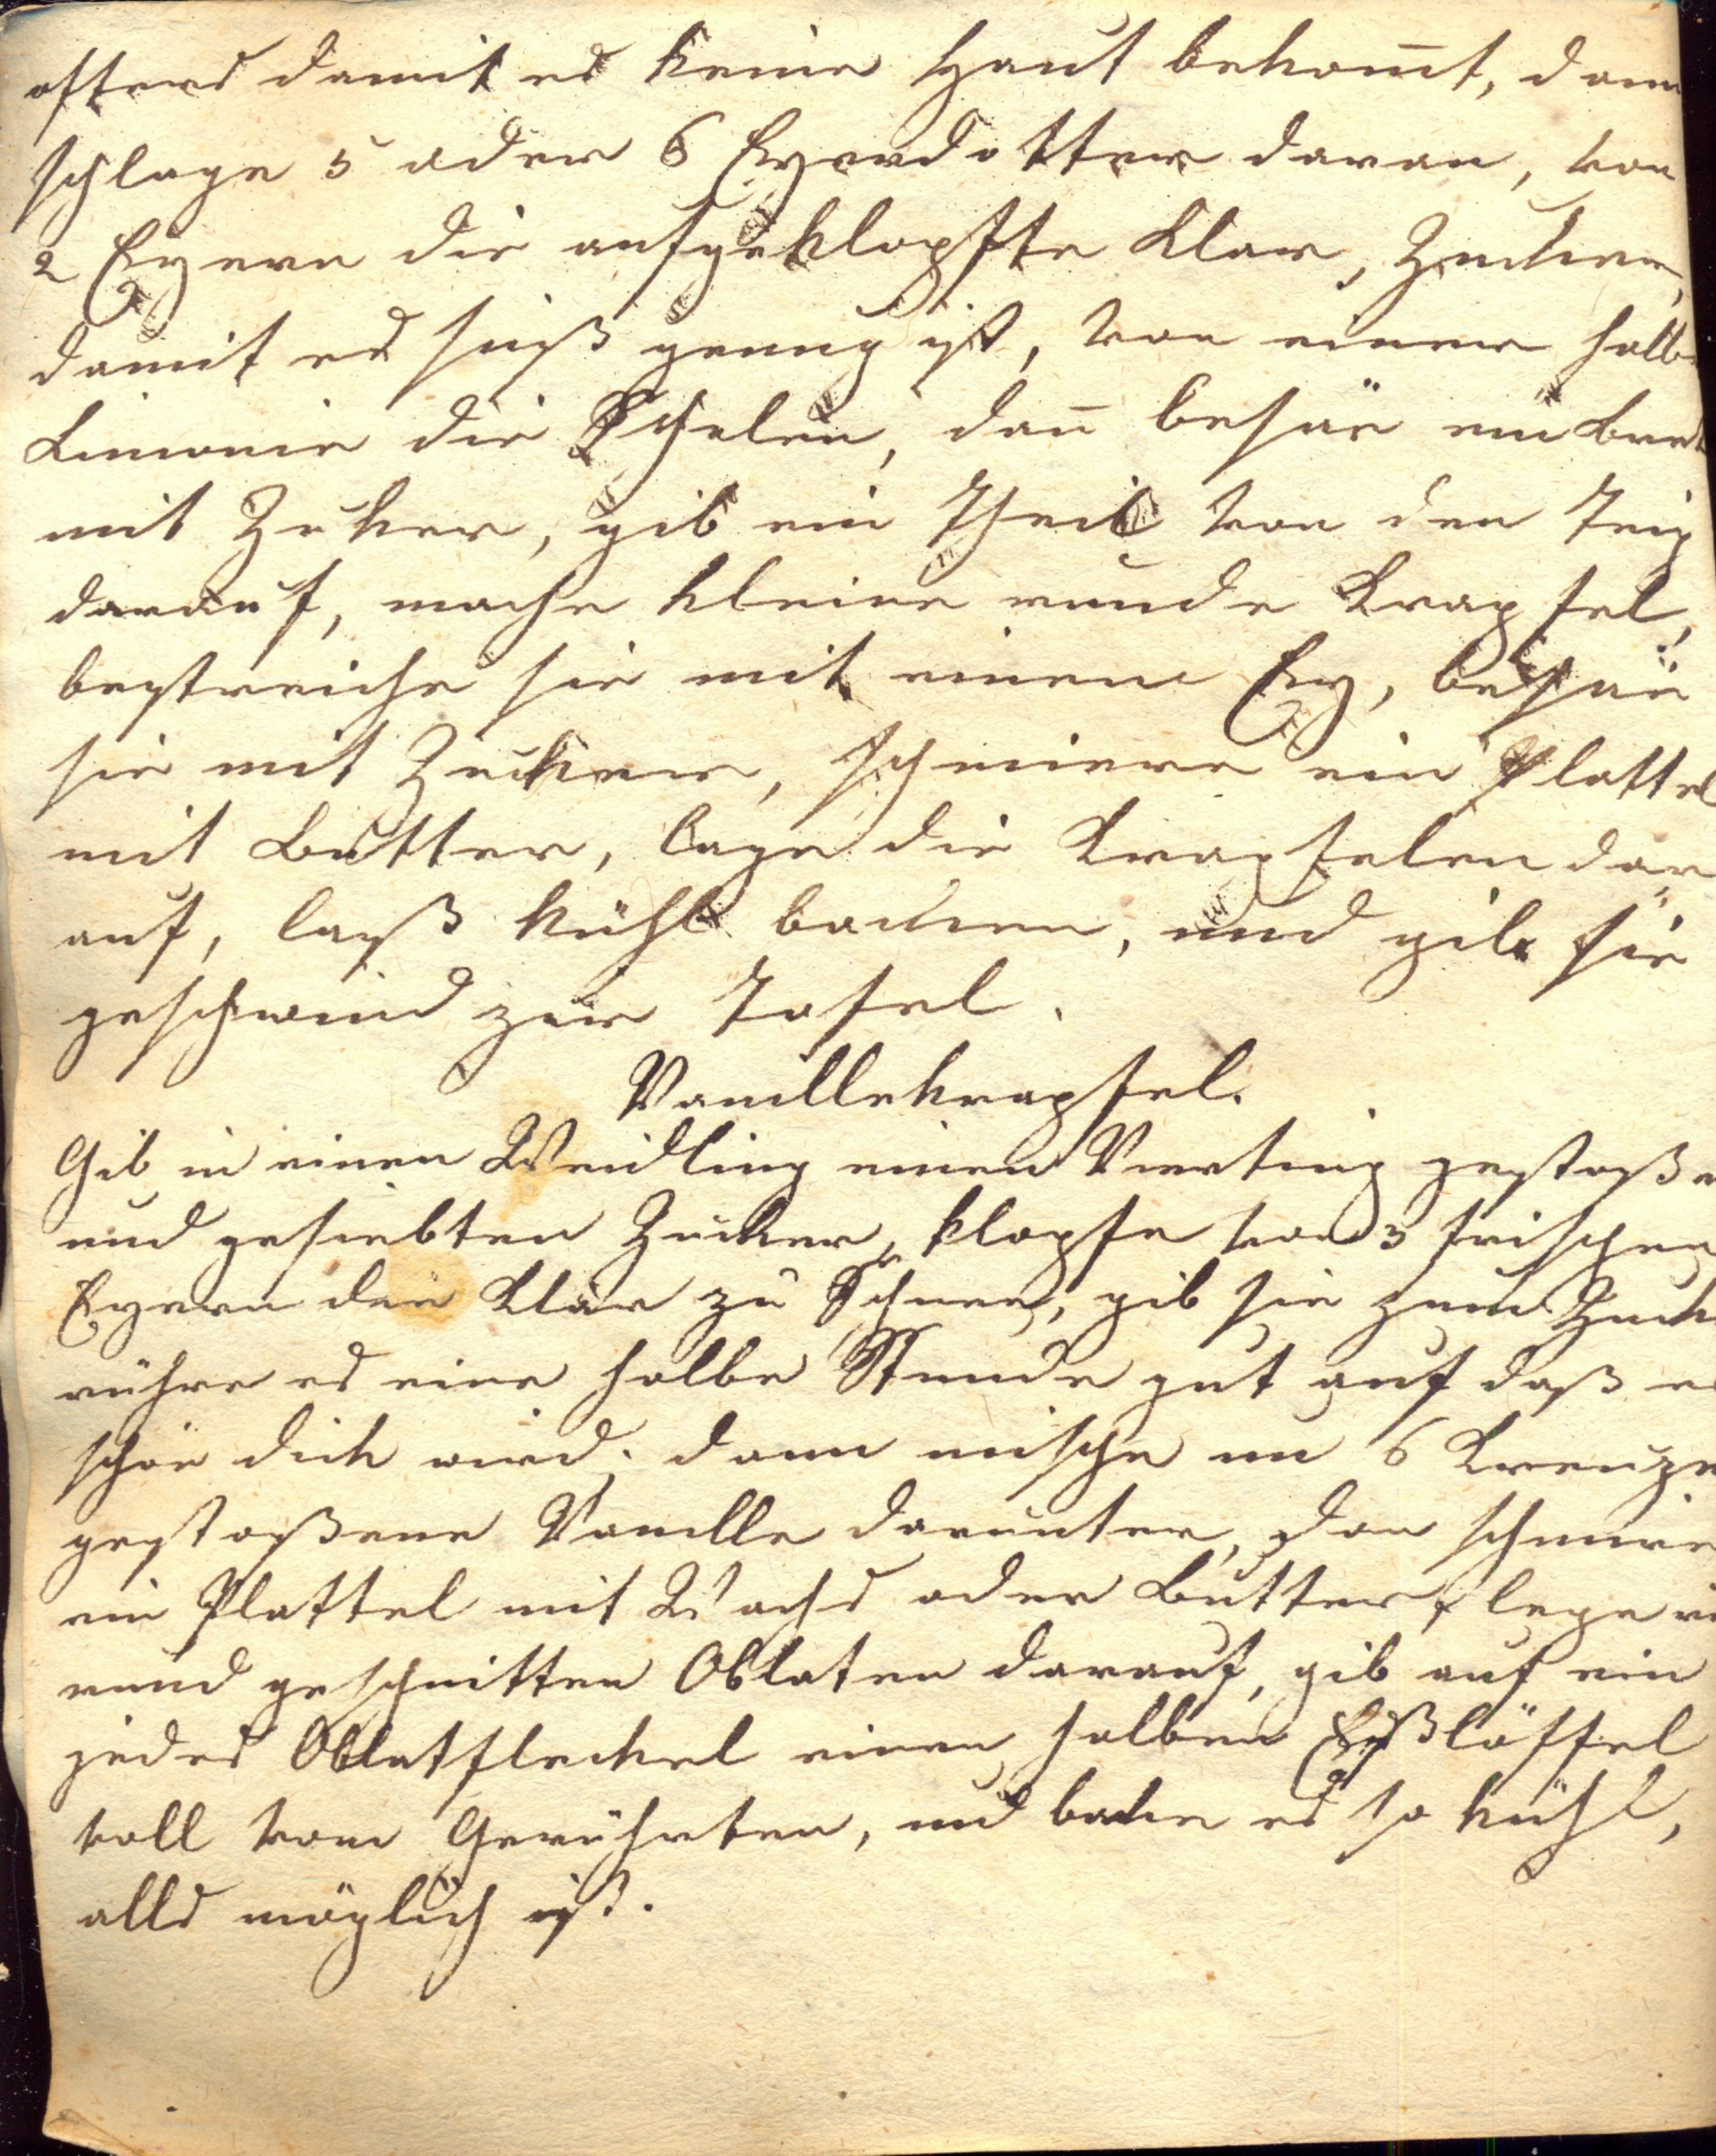 öfters damit es keine Haut bekom̅t, dann
schlage 5 oder 6 Eyerdotter daran, von
2 Eyern die aufgeklopfte Klar, Zucker,
damit es süß genug ist, von einer halb
Limonie die Schelen, dan̅ besäe ein Bret
mit Zuker, gib ein Theil von den Teig
darauf, mache kleine runde Krapfel,
bestreiche sie mit einem Ey, besäe
sie mit Zucker, schmiere ein Plattel
mit Butter, lege die Krapfelen dar
auf, laß kühl backen, und gib sie
geschwind zur Tafel.
Vanillekrapfel.
Gib in einen Weidling einen Vierting gestoße
und gesiebten Zucker, klopfe von 3 frischen
Eyern die Klar zu Schnee, gib sie zum Zuck
rühre es eine halbe Stunde gut auf daß es
schön dick wird; dann mische um 6 Kreuze
gestoßene Vanille darunter, dan schmire
ein Plattel mit Wachs oder Butter, lege
rund geschnitten Oblaten darauf, gib auf ein
jedes Oblatfleckel einen halben Eßlöffel
voll vom Gerührten, und backe es so kühl,
alls möglich ist.